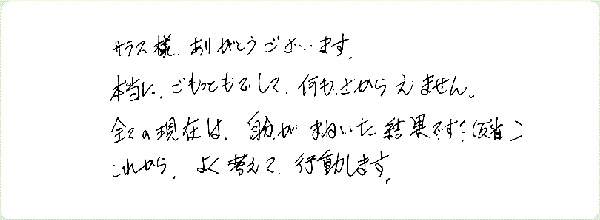 サラス様、ありがとうございます。
本当に、ごもっともでして、何もさからえません。
全ての現在は、自分がまねいた結果です!(反省)
これから、よく考えて、行動します。